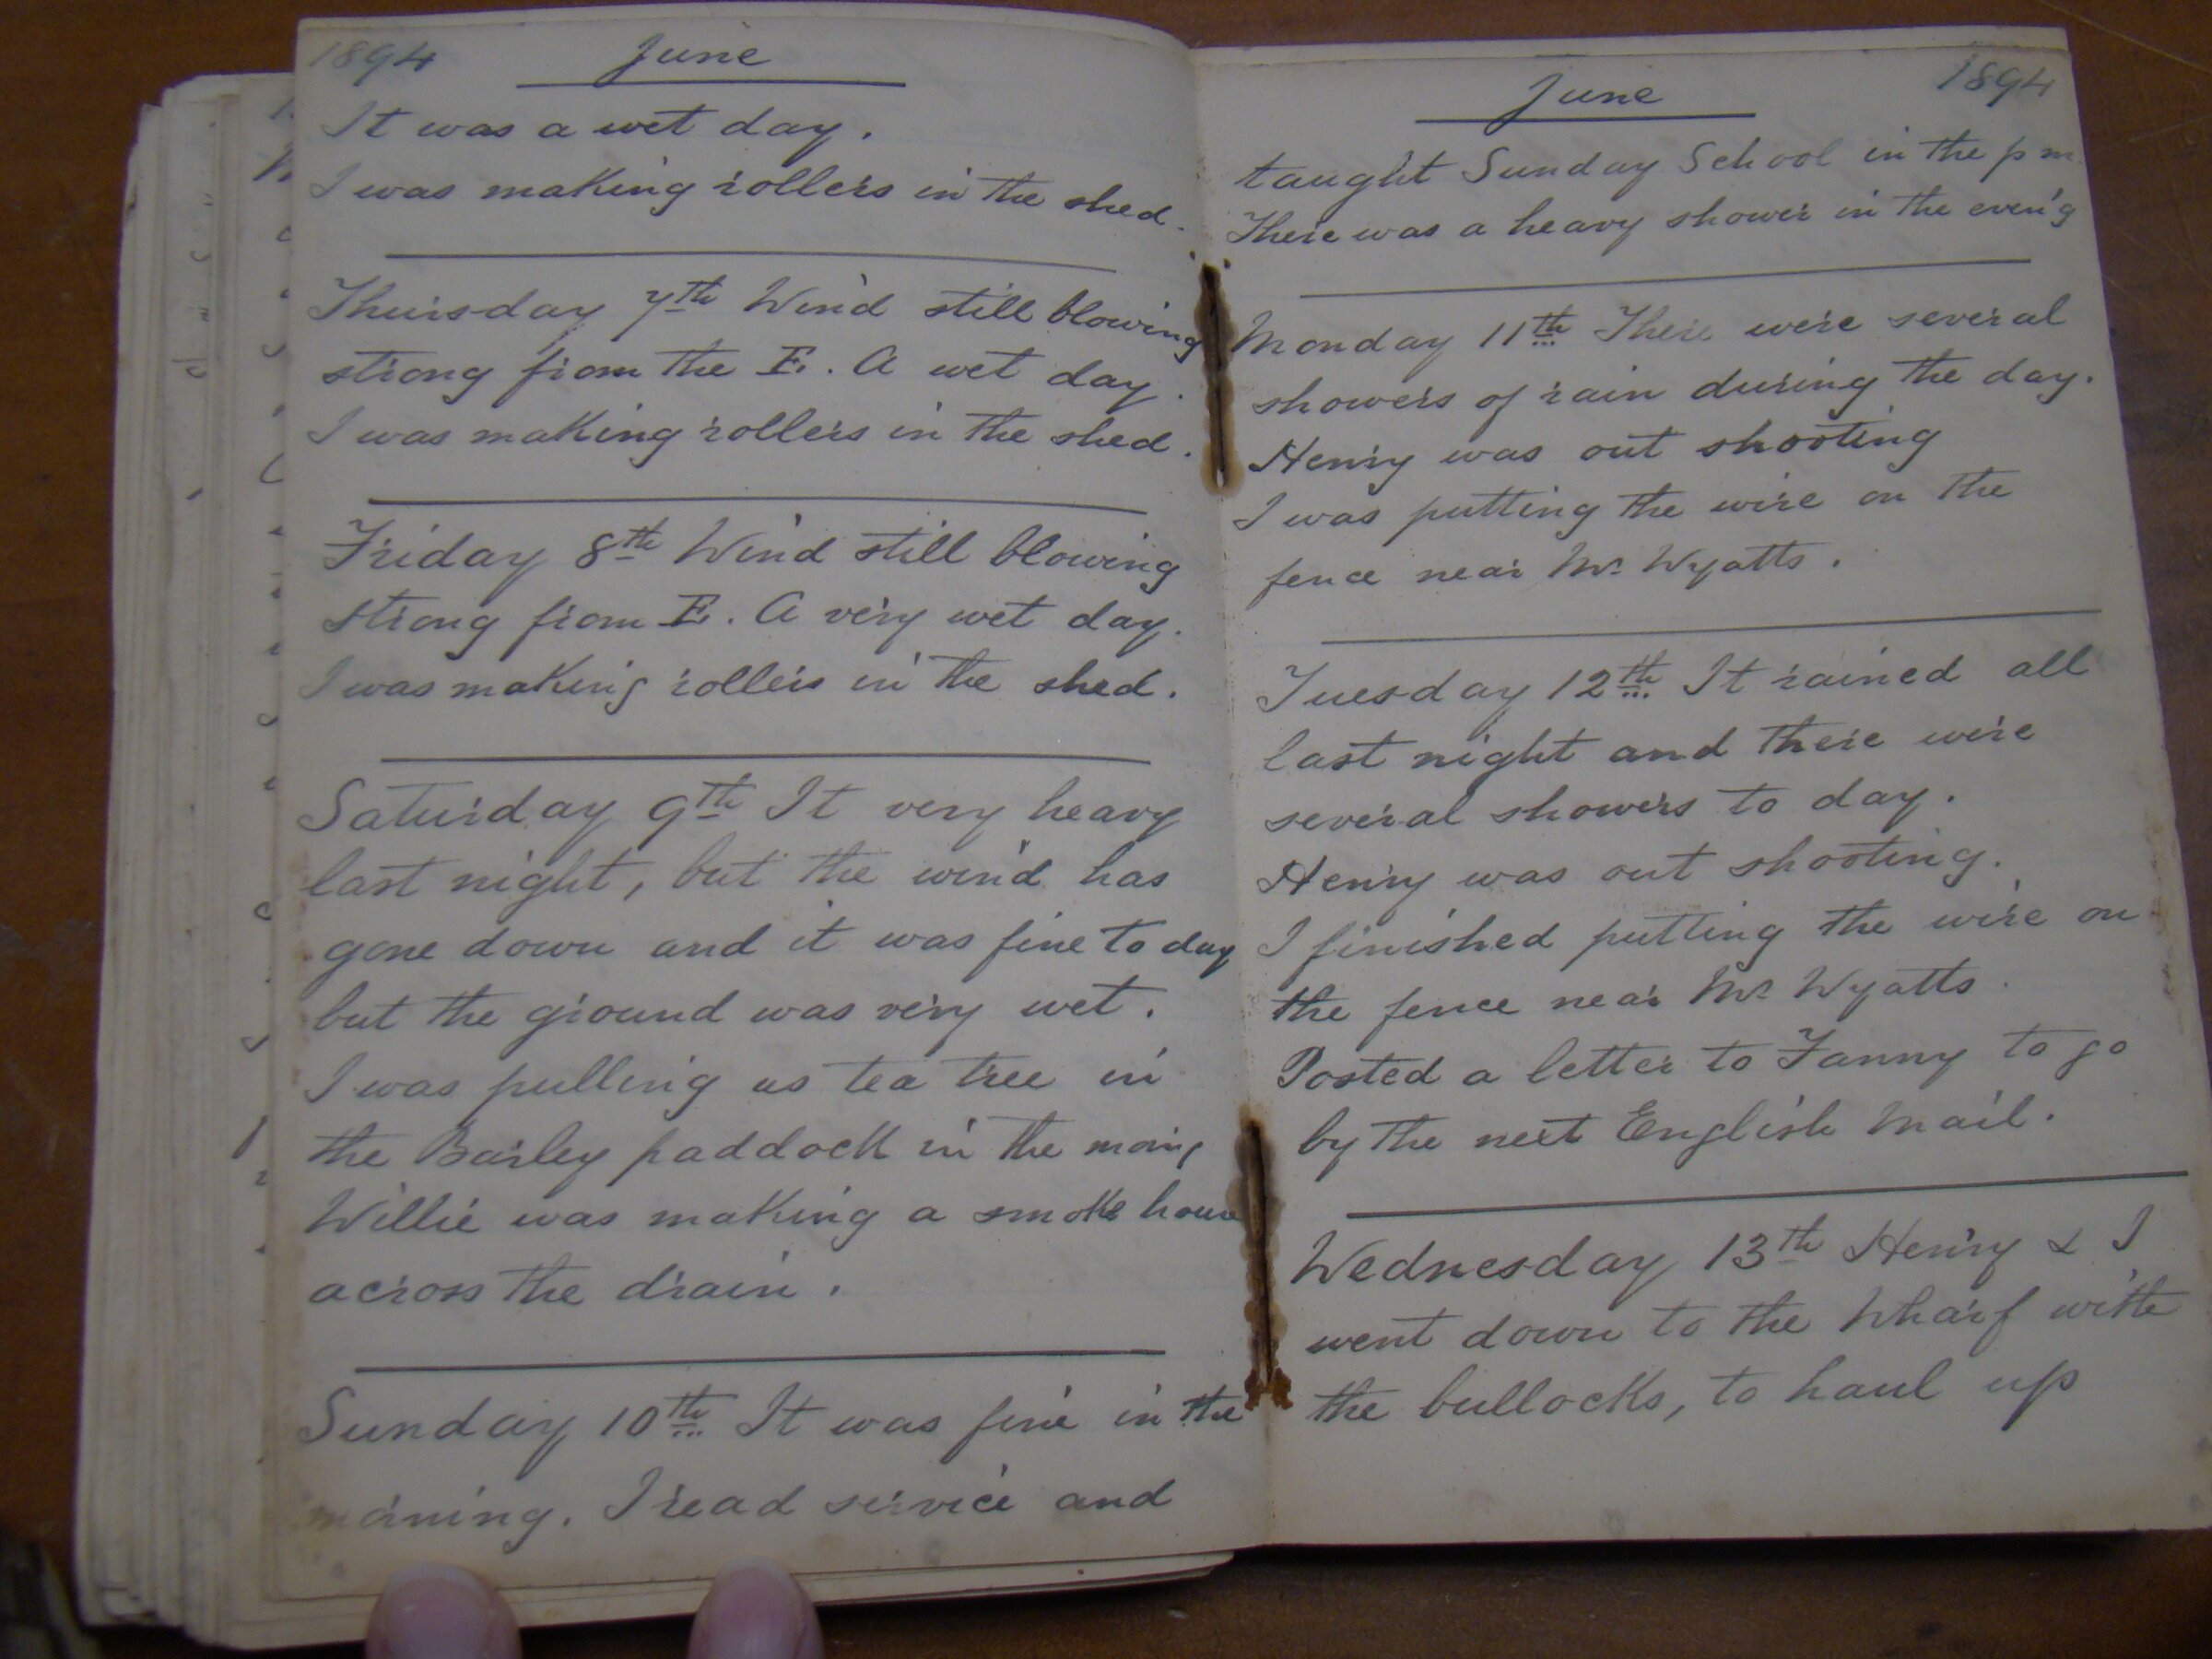 1894 June
It was a wet day.
I was making rollers in the shed.
Thursday 7th Wind still blowing
strong from the E. A wet day.
I was making rollers in the shed.
Friday 8th Wind still blowing
strong from E. A very wet day.
I was making rollers in the shed.
Saturday 9th It very heavy
last night, but the wind has
gone down and it was fine to day
but the ground was very wet.
I was pulling us tea tree in
the Barley paddock in the morng
Willie was making a smoke house
across the drain.
Sunday 10th It was fine in the
morning. I read service and
June 1894
taught Sunday School in the p m.
There was a heavy shower in the even'g
Monday 11th There were several
showers of rain during the day.
Henry was out shooting
I was putting the wire on the
fence near Mr Wyatts.
Tuesday 12th It rained all
last night and there were
several showers to day.
Henry was out shooting.
I finished putting the wire on
the fence near Mr Wyatts.
Posted a letter to Fanny to go
by the next English Mail.
Wednesday 13th Henry & I
went down to the Wharf with
the bullocks, to haul up